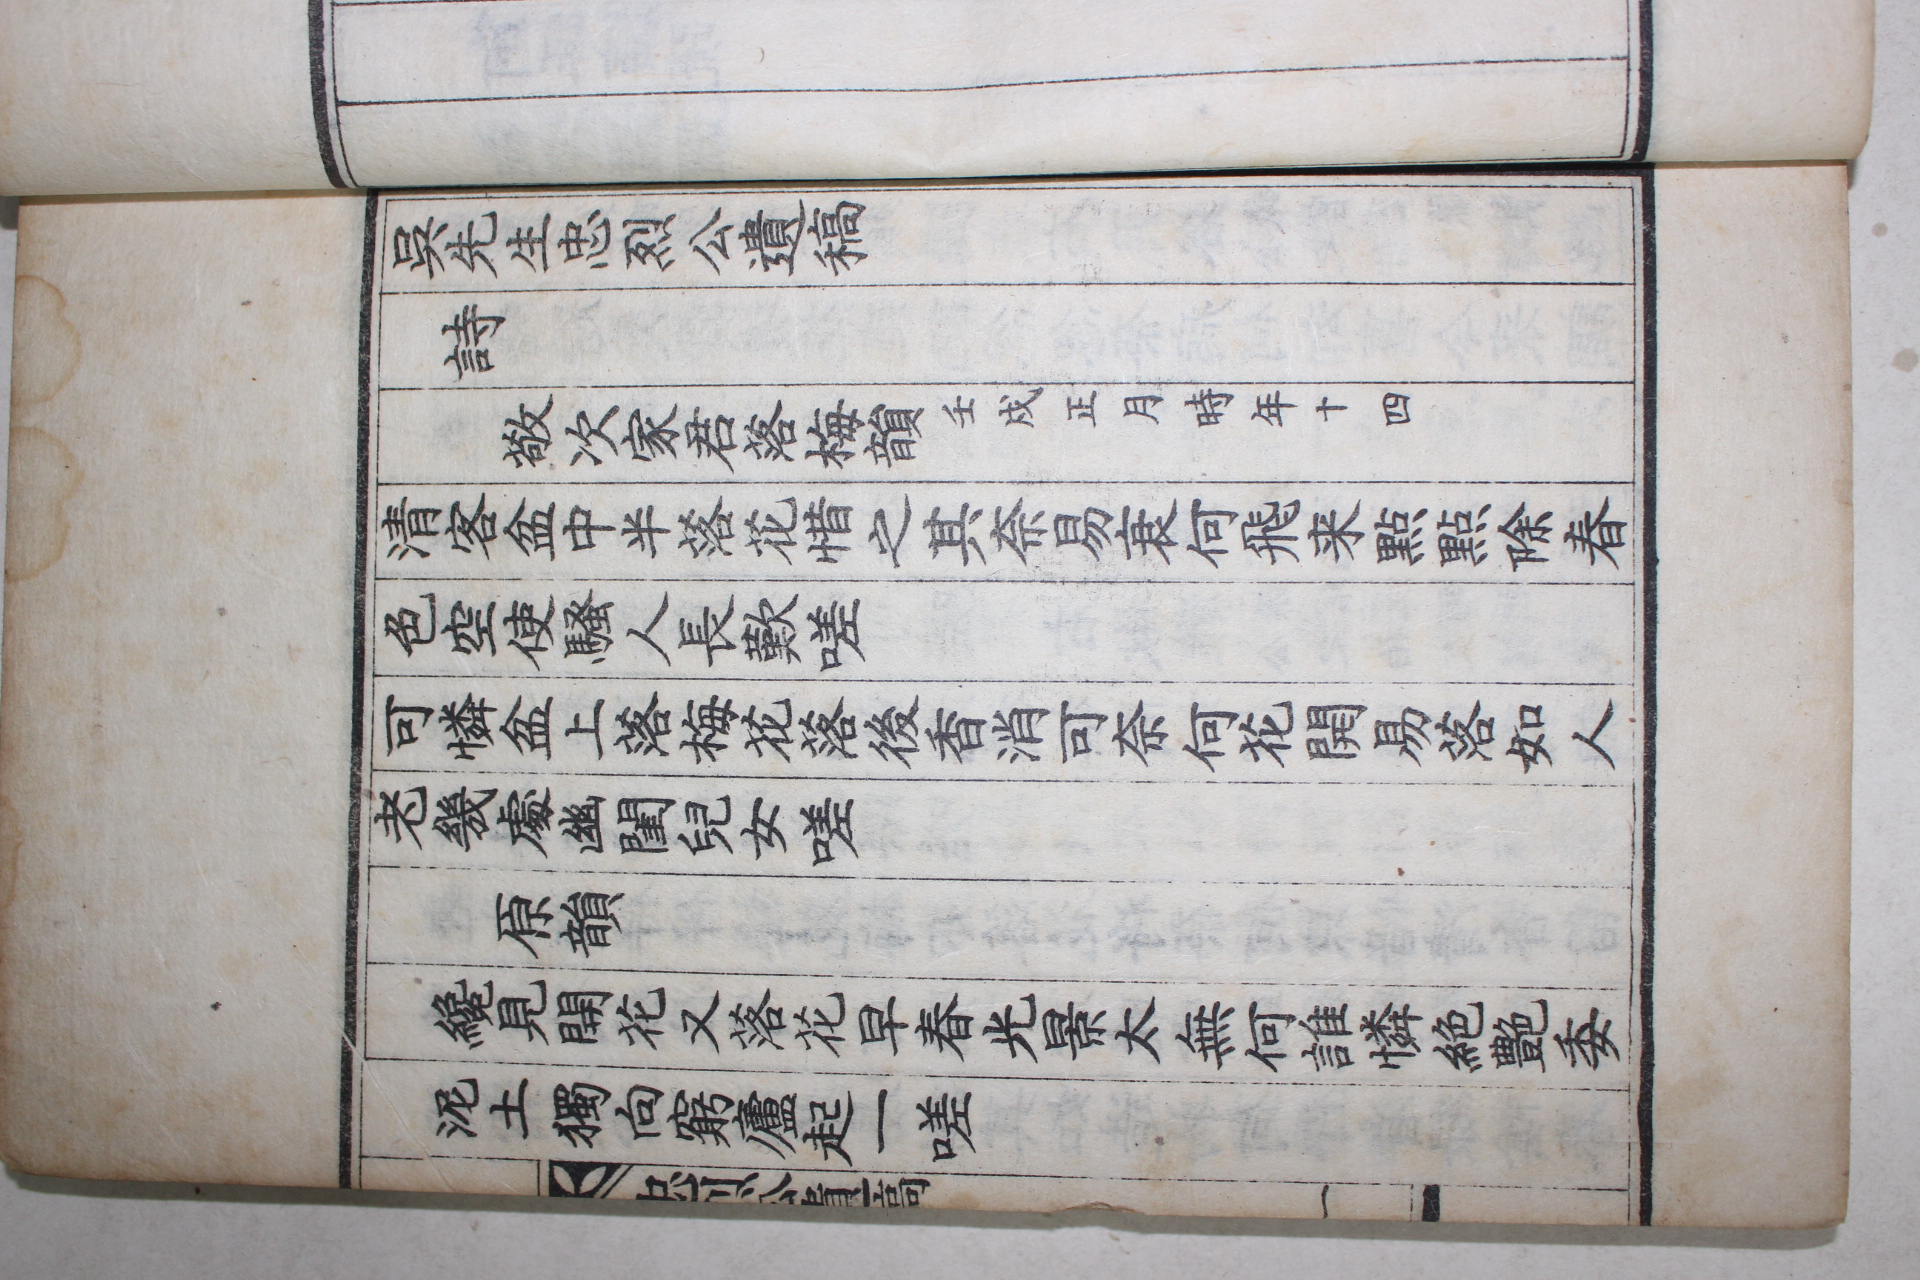 吳先生忠烈公遺稿
詩
敬次家君落梅韻 壬戌正月時年十四
清客盆中半落花惜之其奈易衰何飛来點點除春
色空使騷人長歎嗟
可憐盆上落梅花落後香消可奈何花開易落如人
老幾處幽閨兒女嗟
原韻
纔見開花又落花早春光景太無何誰憐絶艶委
泥土獨向窮廬起一嗟
忠烈公遺稿 一